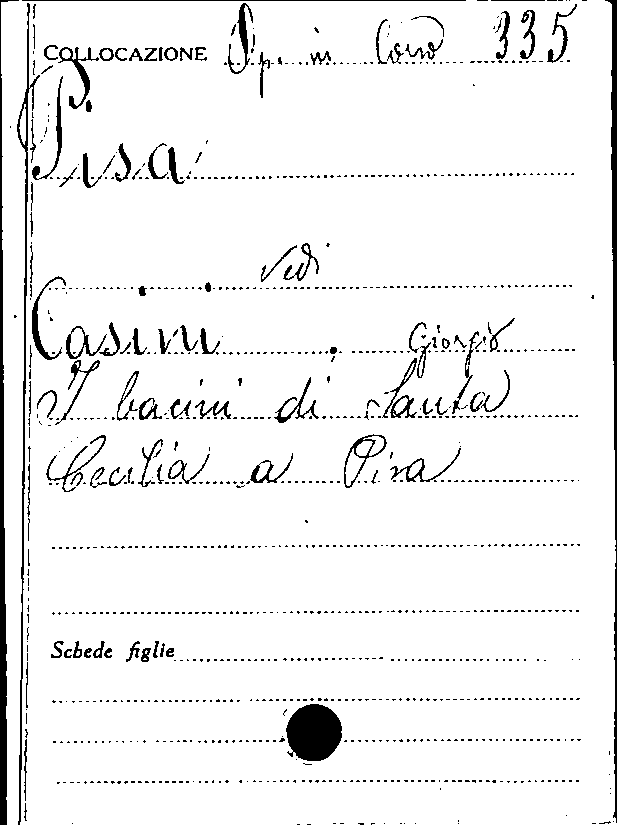 COLLOCAZIONE Op. in Corso 335
Pisa
Vedi
Casini, Giorgio
I bacini di Santa
Cecilia a Pisa
Schede figlie